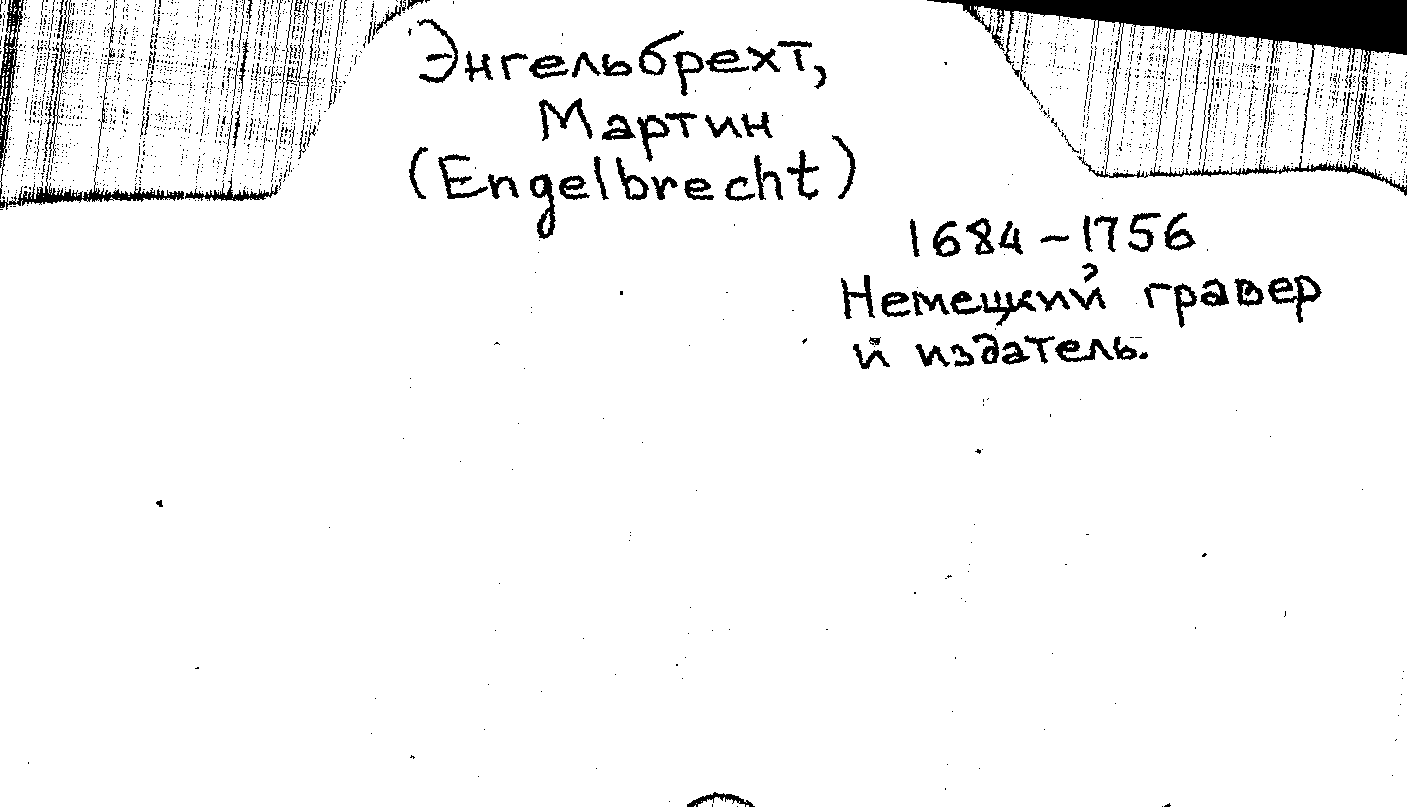 Энгельбрехт,
Мартин
(Engelbrecht)
1684-1756
Немецкий гравер
и издатель.